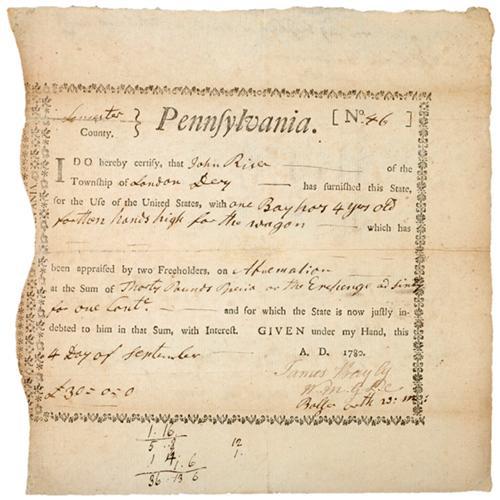 Lancaster } Pennsylvania. [ No. 46 ]
County. }
I DO hereby certify, that John Rise of the
Township of London Dery has furnished this State,
for the Use of the United States, with one Bay hors 4 yrs old
forthen hands high for the wagon which has
been appraised by two Freeholders, on Afermation
at the Sum of Thorty Pounds Specia or the Exchenge
for one and for which the State is now justly in-
debted to him in that Sum, with Interest. GIVEN under my Hand, this
4 Day of September A. D. 1780.
James
£30=0=0
1.16
5 8 12
1 4 1.6 1.
36 13 6